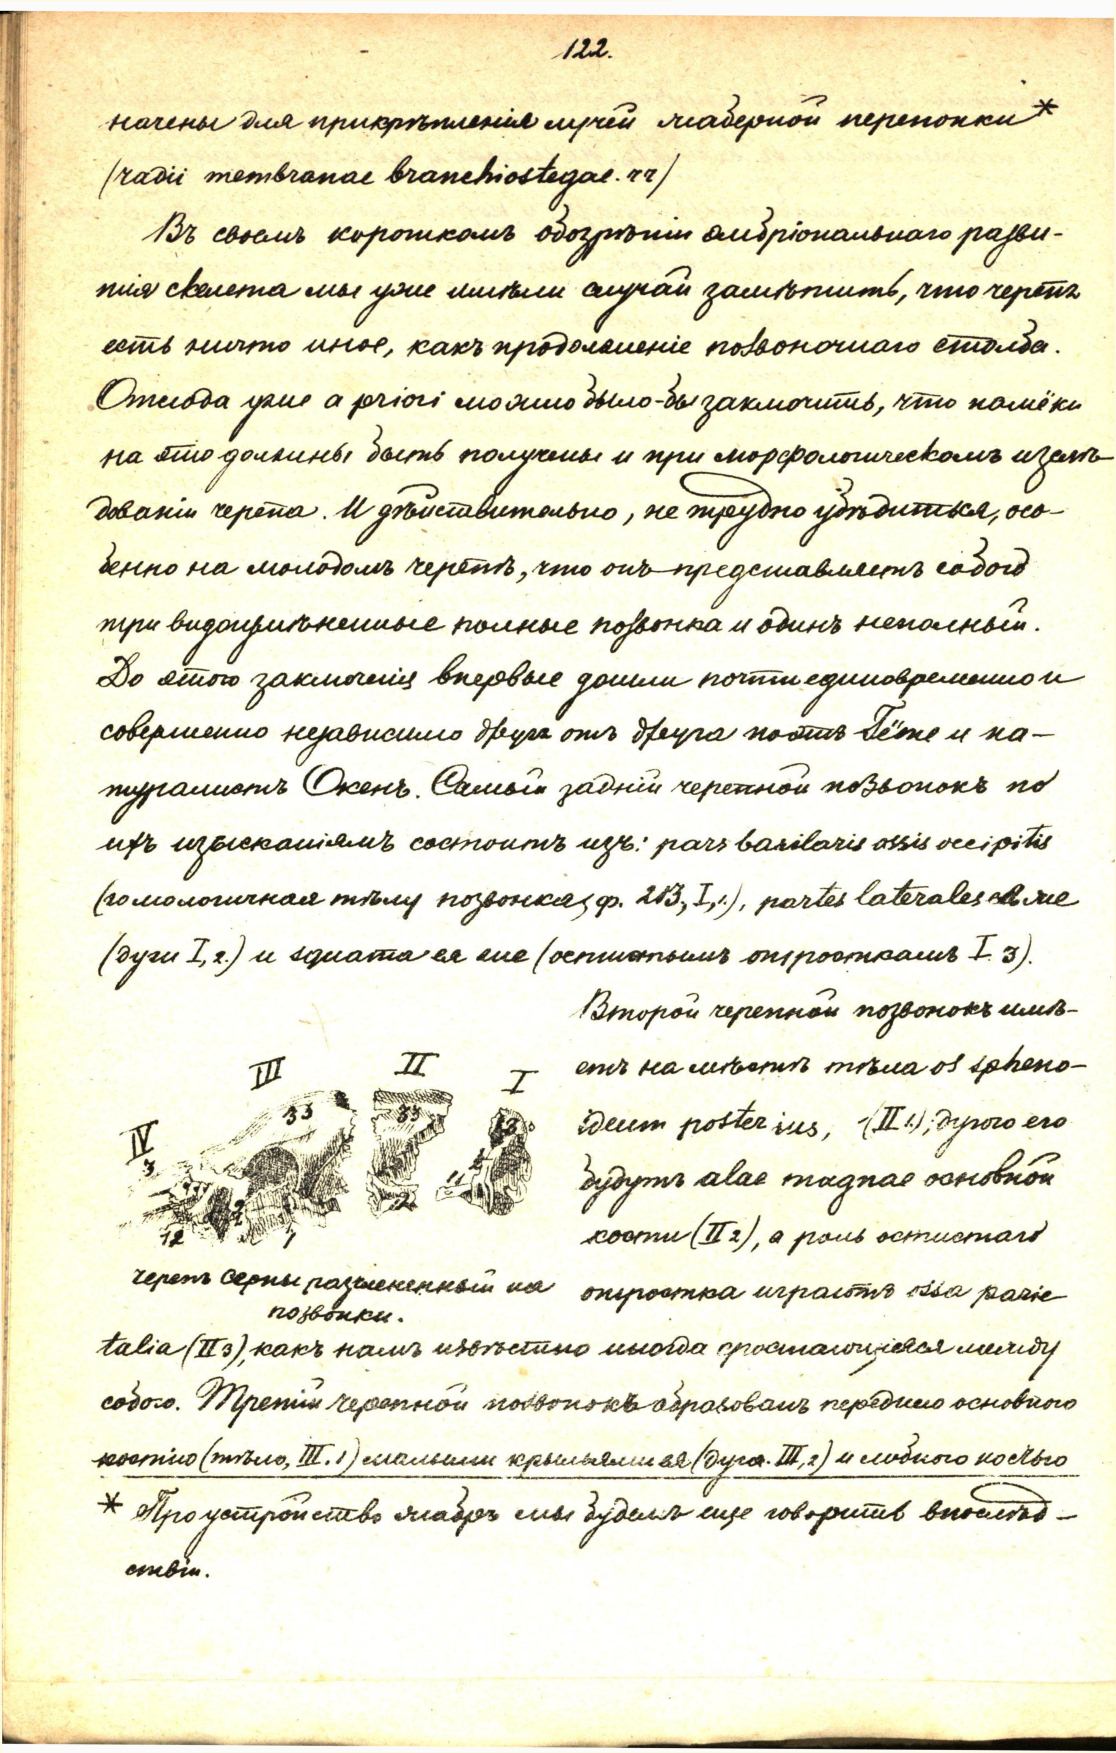 122.
начены для прикрѣпленія лучей жаберной перепонки*
(radii membranae branchiostegae. rr)
Въ своемъ короткомъ обозрѣніи эмбріональнаго разви-
тія скелета мы уже имѣли случай замѣтить, что черепъ
есть ничто иное, какъ продолженіе позвоночнаго столба.
Отсюда уже a priori можно было-бы заключить, что намёки
на это должны быть получены и при морфологическомъ изслѣ-
дованіи черепа. И дѣйствительно, не трудно убѣдиться, осо-
бенно на молодомъ черепѣ, что онъ представляетъ собою
три видоизмѣненные полные позвонка и одинъ неполный.
До этого заключенія впервые дошли почти единовременно и
совершенно независимо другъ отъ друга поэтъ Гёте и на-
туралистъ Океnъ. Самый задній черепной позвонокъ по
ихъ изысканіямъ состоитъ изъ: pars basilaris ossis occipitis
(гомологичная тѣлу позвонка, ф. 213, I, 1.), partes laterales ея же
(дуги I, 2.) и squama ея же (остистымъ отросткамъ I. 3).
Второй черепной позвонокъ имѣ-
етъ на мѣстѣ тѣла os spheno-
ideum posterius, (II 1.); дугою его
будутъ alae magnae основной
кости (II 2), а роль остистаго
отростка играютъ ossa parie
III II I
IV
33 33 3
3 2 11
12 1 2
черепъ серны разчлененный на
позвонки.
talia (II 3), какъ намъ извѣстно иногда сростающіеся между
собою. Третій черепной позвонокъ образованъ переднею основною
костью (тѣло, III. 1) малыми крыльями ея (дуга. III, 2) и лобною костью
* Про устройство жабръ мы будемъ еще говорить впослѣд-
ствіи.